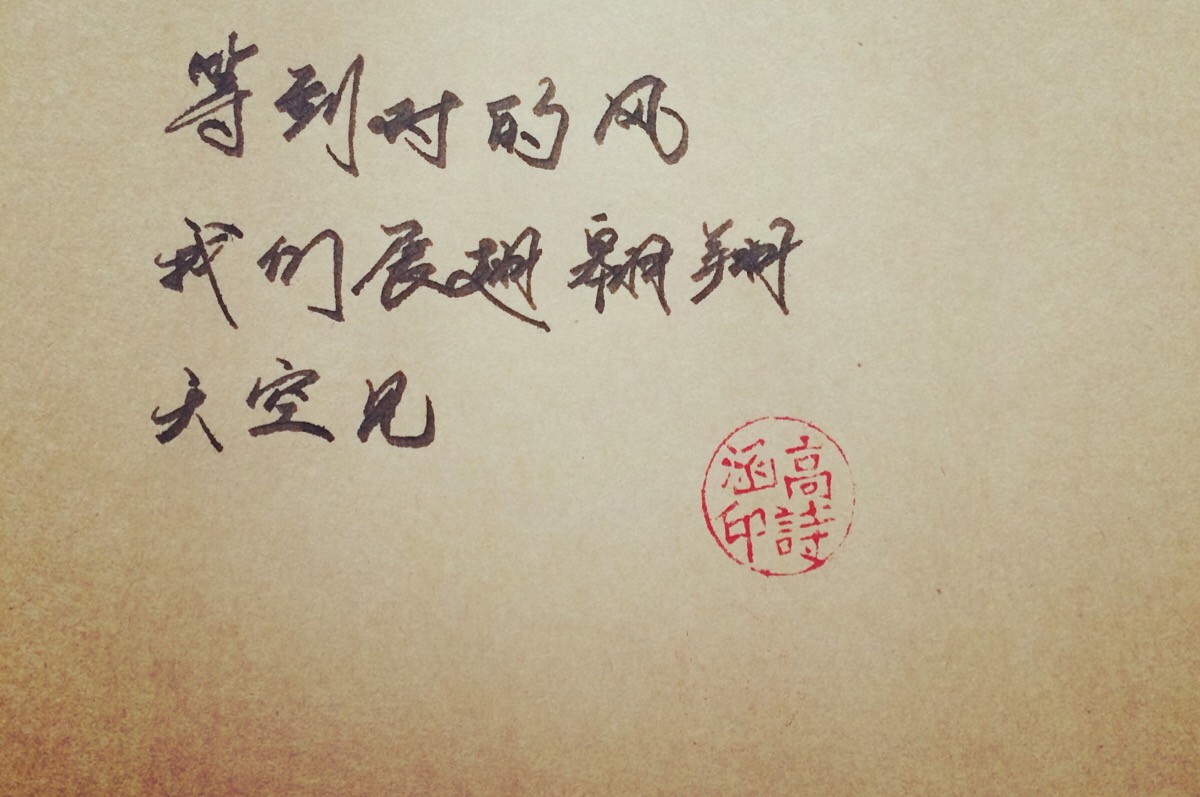 等到对的风
我们展翅翱翔
天空见
高詩
涵印